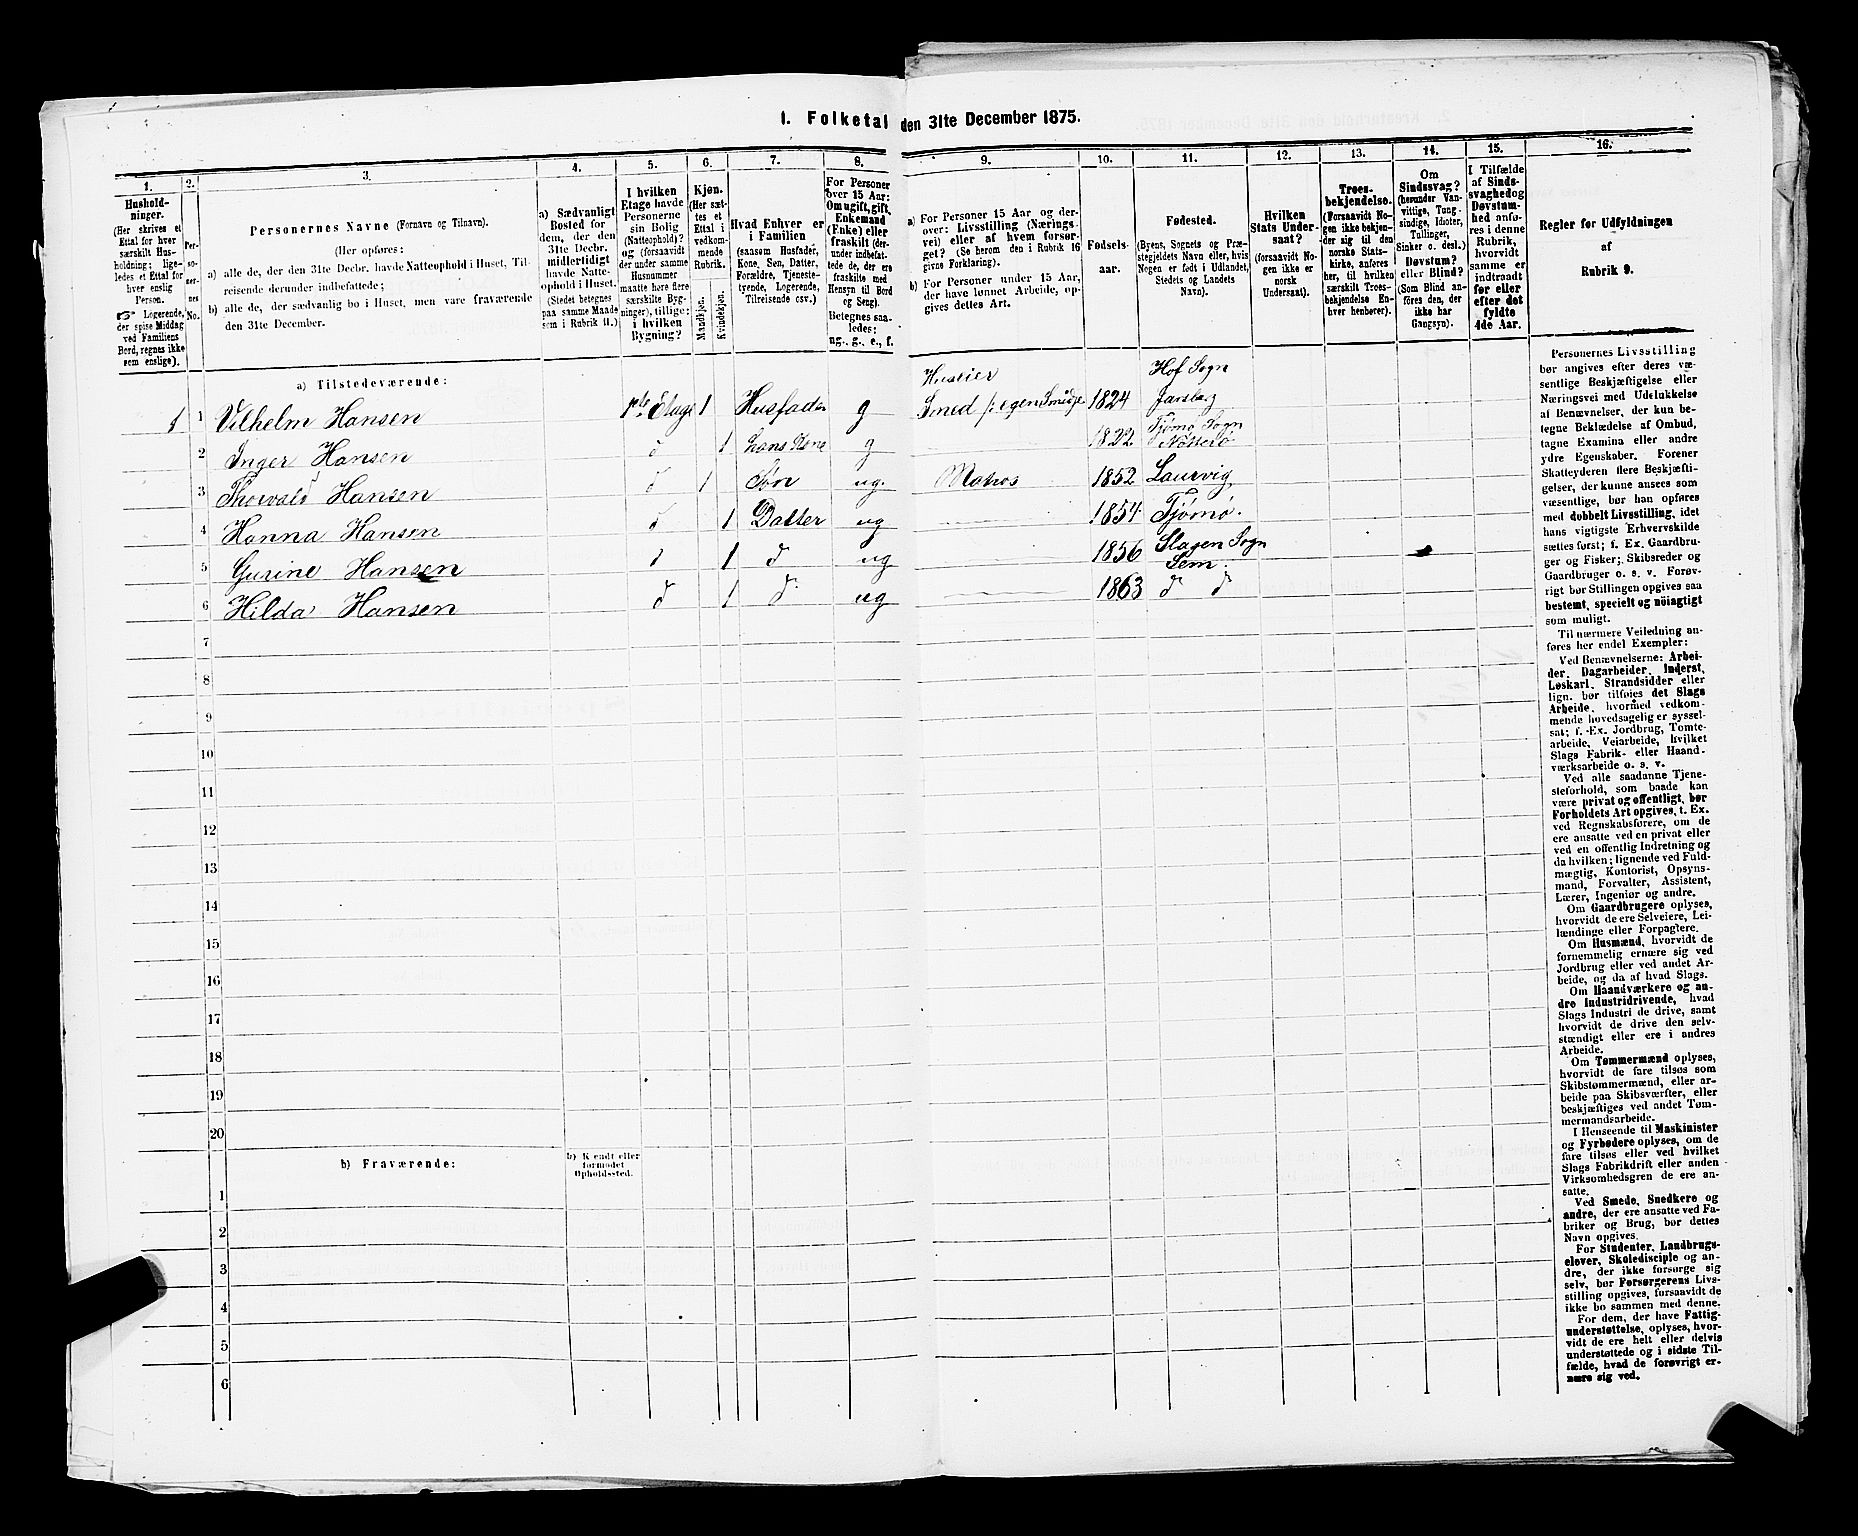 1. Folketal den 31te December 1875.
1.
2.
3.
4.
5.
6.
7.
8.
9.
10.
11.
12.
13.
14.
15.
16.
Hushold-
ninger.
(Her skrives et
Ettal for hver
særskilt Hus-
holdning; lige-
ledes et Ettal for
hver enslig
Person.
☞ Logerende,
der spise Middag
ved Familiens
Bord, regnes ikke
som enslige).
Per-
so-
ner-
nes
No.
Personernes Navne (Fornavn og Tilnavn).
(Her opføres:
a) alle de, der den 31te Decbr. havde Natteophold i Huset, Til-
reisende derunder indbefattede;
b) alle de, der sædvanlig bo i Huset, men vare fraværende
den 31te December.
a) Sædvanligt
Bosted for
dem, der den
31te Decbr.
midlertidigt
havde Natte-
ophold i Huset.
(Stedet betegnes
paa samme Maade
som i Rubrik 11.)
I hvilken
Etage havde
Personerne
sin Bolig
(Natteophold)?
og (forsaavidt
der under samme
Husnummer
maatte høre flere
særskilte Byg-
ninger), tillige:
i hvilken
Bygning?
Kjøn.
(Her sæt-
tes et
Ettal i
vedkom-
mende
Rubrik.
Mandkjøn.
Kvindekjøn.
Hvad Enhver er
i Familien
(saasom Husfader,
Kone, Søn, Datter,
Forældre, Tjeneste-
tyende, Logerende,
Tilreisende csv.)
For Personer
over 15 Aar:
Om ugift, gift,
Enkemand
(Enke) eller
fraskilt (der-
under indbefat-
tede de, der ere
fraskilte med
Hensyn til Bord
og Seng).
Betegnes saa-
ledes:
ug., g., e., f.
a) For Personer 15 Aar og der-
over: Livsstilling (Nærings-
vei) eller af hvem forsør-
get? (Se herom den i Rubrik 16
givne Forklaring).
b) For Personer under 15 Aar,
der have lønnet Arbeide, op-
gives dettes Art.
Fødsels-
aar.
Fødested.
(Byens, Sognets og Præ-
stegjeldets Navn eller, hvis
Nogen er født i Udlandet,
Stedets og Landets
Navn).
Hvilken
Stats Under-
saat?
(forsaavidt No-
gen ikke er
norsk
Undersaat).
Troes-
bekjendelse.
(Forsaavidt No-
gen ikke bekjen-
der sig til den
norske Stats-
kirke, anføres
her, til hvilken
særskilt Troes-
bekjendelse En-
hver henhører).
Om
Sindssvag?
(herunder Van-
vittige, Tung-
sindige, Idioter,
Tullinger,
Sinker o. desl.)
Døvstum?
eller Blind?
(Som Blind an-
føres den, der
ikke har
Gangsyn).
I Tilfælde
af Sinds-
svaghed og
Døvstum-
hed anfø-
res i denne
Rubrik,
hvorvidt
samme er
indtraadt
før eller
efter det
fyldte
4de Aar.
Regler før Udfyldningen
af
Rubrik 9.
a) Tilstedeværende:
Huseier
Hof Sogn
1 1 Vilhelm Hansen 1ste Etage 1 Husfader g Smed egen Smidje 1824 Jarlsberg
Tjømø Sogn
2 Inger Hansen d 1 hans Kone g 1822 Nøtterø
3 Thorvald Hansen d 1 Søn ug. Matros 1852 Laurvig
4 Hanna Hansen d 1 Datter ug 1854 Tjømø.
Slagen Sogn
5 Gurine Hansen d 1 d ug 1856 Sem.
6 Hilda Hansen d 1 d ug 1863 d d
7
8
9
10
11
12
13
14
15
16
17
18
19
20
b) Fraværende:
b) Kjendt eller
formodet
Opholdssted.
1
2
3
4
5
6
Personernes Livsstilling
bør angives efter deres væ-
sentlige Beskjæftigelse eller
Næringsvei med Udelukkelse
af Benævnelser, der kun be-
tegne Beklædelse af Ombud,
tagne Examina eller andre
ydre Egenskaber. Forener
Skatteyderen flere Beskjæfti-
gelser, der kunne ansees som
væsentlige, bør han opføres
med dobbelt Livsstilling, idet
hans vigtigste Erhvervskilde
sættes først; f. Ex. Gaardbru-
ger og Fisker; Skibsreder og
Gaardbruger o. s. v. Forøv-
rigt bør Stillingen opgives saa
bestemt, specielt og nöiagtigt
som muligt.
Til nærmere Veiledning an-
føres her endel Exempler:
Ved Benævnelserne: Arbei-
der, Dagarbeider, Inderst,
Løskarl, Strandsidder eller
lign. bør tilføies det Slags
Arbeide, hvormed vedkom-
mende hovedsagelig er syssel-
sat; f. Ex. Jordbrug, Tomte-
arbeide, Veiarbeide, hvilket
Slags Fabrik- eller Haand-
værksarbeide o. s. v.
Ved alle saadanne Tjene-
steforhold, som baade kan
være privat og offentligt, bør
Forholdets Art opgives, t. Ex.
ved Regnskabsførere, om de
ere ansatte ved en privat eller
ved en offentlig Indretning og
da hvilken; lignende ved Fuld-
mægtig, Kontorist, Opsyns-
mand, Forvalter, Assistent,
Lærer, Ingeniør og andre.
Om Gaardbrugere oplyses,
hvorvidt de ere Selveiere, Lei-
lændinge eller Forpagtere.
Om Husmænd, hvorvidt de
fornemmelig ernære sig ved
Jordbrug eller ved andet Ar-
beide, og da af hvad Slags.
Om Haandværkere og an-
dre Industridrivende, hvad
Slags Industri de drive, samt
hvorvidt de drive den selv-
stændigt eller ere i andres
Arbeide.
Om Tømmermænd oplyses,
hvorvidt de fare tilsøs som
Skibstømmermænd, eller ar-
beide paa Skibsværfter, eller
beskjæftiges ved andet Tøm-
mermandsarbeide.
I Henseende til Maskinister
og Fyrbødere oplyses, om de
fare tilsøs eller ved hvilket
Slags Fabrikdrift eller anden
Virksomhedsgren de ere an-
satte.
Ved Smede, Snedkere og
andre, der ere ansatte ved Fa-
briker og Brug, bør dettes
Navn opgives.
For Studenter, Landbrugs-
elever, Skoledisciple og an-
dre, der ikke forsørge sig
selv, bør Forsørgerens Livs-
stilling opgives, forsaavidt de
ikke bo sammen med denne.
For dem, der have Fattig-
understøttelse, oplyses, hvor-
vidt de ere helt eller delvis
understøttede og i sidste Til-
fælde, hvad de forøvrigt er-
nære sig ved.